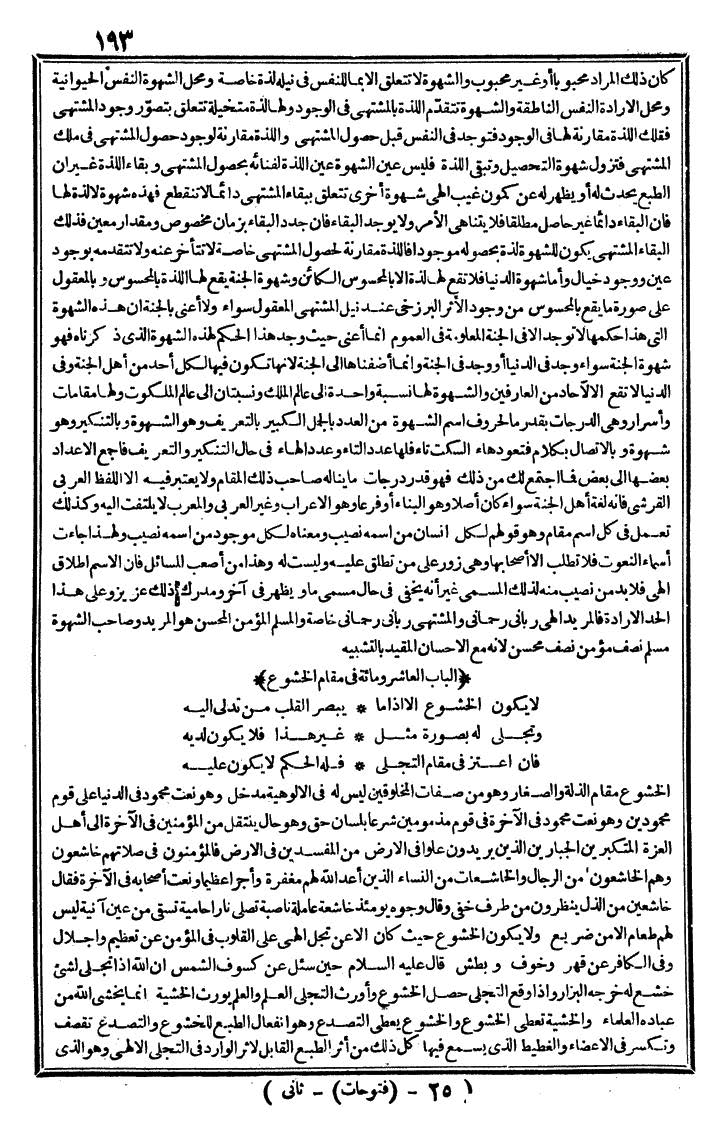 ١٩٣
كان ذلك المراد محبوبا أو غير محبوب والشهوة لا تتعلق الا بما للنفس فى نيله لذة خاصة ومحل الشهوة النفس الحيوانية
ومحل الارادة النفس الناطقة والشهوة تتقدم اللذة بالمشتهى فى الوجود ولها لذة متخيلة تتعلق بتصور وجود المشتهى
فتلك اللذة مقارنة لها فى الوجود فتوجد فى النفس قبل حصول المشتهى واللذة مقارنة لوجود حصول المشتهى فى ملك
المشتهى فتزول شهوة التحصيل وتبقى اللذة فليس عين الشهوة عين اللذة لفنائه بحصول المشتهى وبقاء اللذة غير ان
الطبع يحدث له أو يظهر له عن كمون غيب الهى شهوة أخرى تتعلق ببقاء المشتهى دائما لا تنقطع فهذه شهوة لا لذة لها
فان البقاء دائما غير حاصل مطلقا فلا يتناهى الأمر ولا يوجد البقاء فان جدد البقاء بزمان مخصوص ومقدار معين فذلك
البقاء المشتهى يكون للشهوة لذة بحصوله موجودا فاللذة مقارنة لحصول المشتهى خاصة لا تتأخر عنه ولا تتقدمه بوجود
عين ووجود خيال وأما شهوة الدنيا فلا تقع لها لذة الا بالمحسوس الكائن وشهوة الجنة يقع لها اللذة بالمحسوس وبالمعقول
على صورة ما يقع بالمحسوس من وجود الأثر البرزخى عند نيل المشتهى المعقول سواء ولا أعنى بالجنة ان هذه الشهوة
التى هذا حكمها لا توجد الا فى الجنة المعلومة فى العموم انما أعنى حيث وجد هذا الحكم لهذه الشهوة الذى ذكرناه فهو
شهوة الجنة سواء وجد فى الدنيا أو وجد فى الجنة وانما أضفناها الى الجنة لانها تكون فيها لكل أحد من أهل الجنة وفى
الدنيا لا تقع الا لآحاد من العارفين والشهوة لها نسبة واحدة الى عالم الملك ونسبتان الى عالم الملكوت ولها مقامات
وأسرار وهى الدرجات بقدر ما لحروف اسم الشهوة من العدد بالجمل الكبير بالتعريف وهو الشهوة وبالتنكير وهو
شهوة وبالاتصال بكلام فتعود هاء السكت تاء فلها عدد التاء وعدد الهاء فى حال التنكير والتعريف فاجمع الاعداد
بعضها الى بعض فما اجتمع لك من ذلك فهو قدر درجات ما يناله صاحب ذلك المقام ولا يعتبر فيه الا اللفظ العربى
القرشى فانه لغة أهل الجنة سواء كان أصلا وهو البناء أو فرعا وهو الاعراب وغير العربى والمعرب لا يلتفت اليه وكذلك
تعمل فى كل اسم مقام وهو قولهم لكل انسان من اسمه نصيب ومعناه لكل موجود من اسمه نصيب ولهذا جاءت
أسماء النعوت فلا تطلب الا أصحابها وهى زور على من تطلق عليه وليست له وهذا من أصعب المسائل فان الاسم اطلاق
الهى فلا بد من نصيب منه لذلك المسمى غير أنه يخفى فى حال مسمى ما ويظهر فى آخر ومدرك ذلك عزيز وعلى هذا
الحد الارادة فالمريد الهى ربانى رحمانى والمشتهى ربانى رحمانى خاصة والمسلم المؤمن المحسن هو المريد وصاحب الشهوة
مسلم نصف مؤمن نصف محسن لانه مع الاحسان المقيد بالتشبيه
﴿الباب العاشر ومائة فى مقام الخشوع﴾
لا يكون الخشوع الا اذا ما * يبصر القلب من تدلى اليه
وتجلى له بصورة مثل * غير هذا فلا يكون لديه
فان اعتز فى مقام التجلى * فله الحكم لا يكون عليه
الخشوع مقام الذلة والصغار وهو من صفات المخلوقين ليس له فى الالوهية مدخل وهو نعت محمود فى الدنيا على قوم
محمودين وهو نعت محمود فى الآخرة فى قوم مذمومين شرعا بلسان حق وهو حال ينتقل من المؤمنين فى الآخرة الى أهل
العزة المتكبرين الجبارين الذين يريدون علوا فى الارض من المفسدين فى الارض فالمؤمنون فى صلاتهم خاشعون
وهم الخاشعون من الرجال والخاشعات من النساء الذين أعد الله لهم مغفرة وأجرا عظيما ونعت أصحابه فى الآخرة فقال
خاشعين من الذل ينظرون من طرف خفى وقال وجوه يومئذ خاشعة عاملة ناصبة تصلى نارا حامية تسقى من عين آنية ليس
لهم طعام الا من ضريع ولا يكون الخشوع حيث كان الا عن تجل الهى على القلوب فى المؤمن عن تعظيم واجلال
وفى الكافر عن قهر وخوف وبطش قال عليه السلام حين سئل عن كسوف الشمس ان الله اذا تجلى لشئ
خشع له خرجه البزار واذا وقع التجلى حصل الخشوع وأورث التجلى العلم والعلم يورث الخشية انما يخشى الله من
عباده العلماء والخشية تعطى الخشوع والخشوع يعطى التصدع وهو انفعال الطبع للخشوع والتصدع تقصف
وتكسر فى الاعضاء والغطيط الذى يسمع فيها كل ذلك من أثر الطبع القابل لاثر الوارد فى التجلى الالهى وهو الذى
( ٢٥ - (فتوحات) - ثانى )